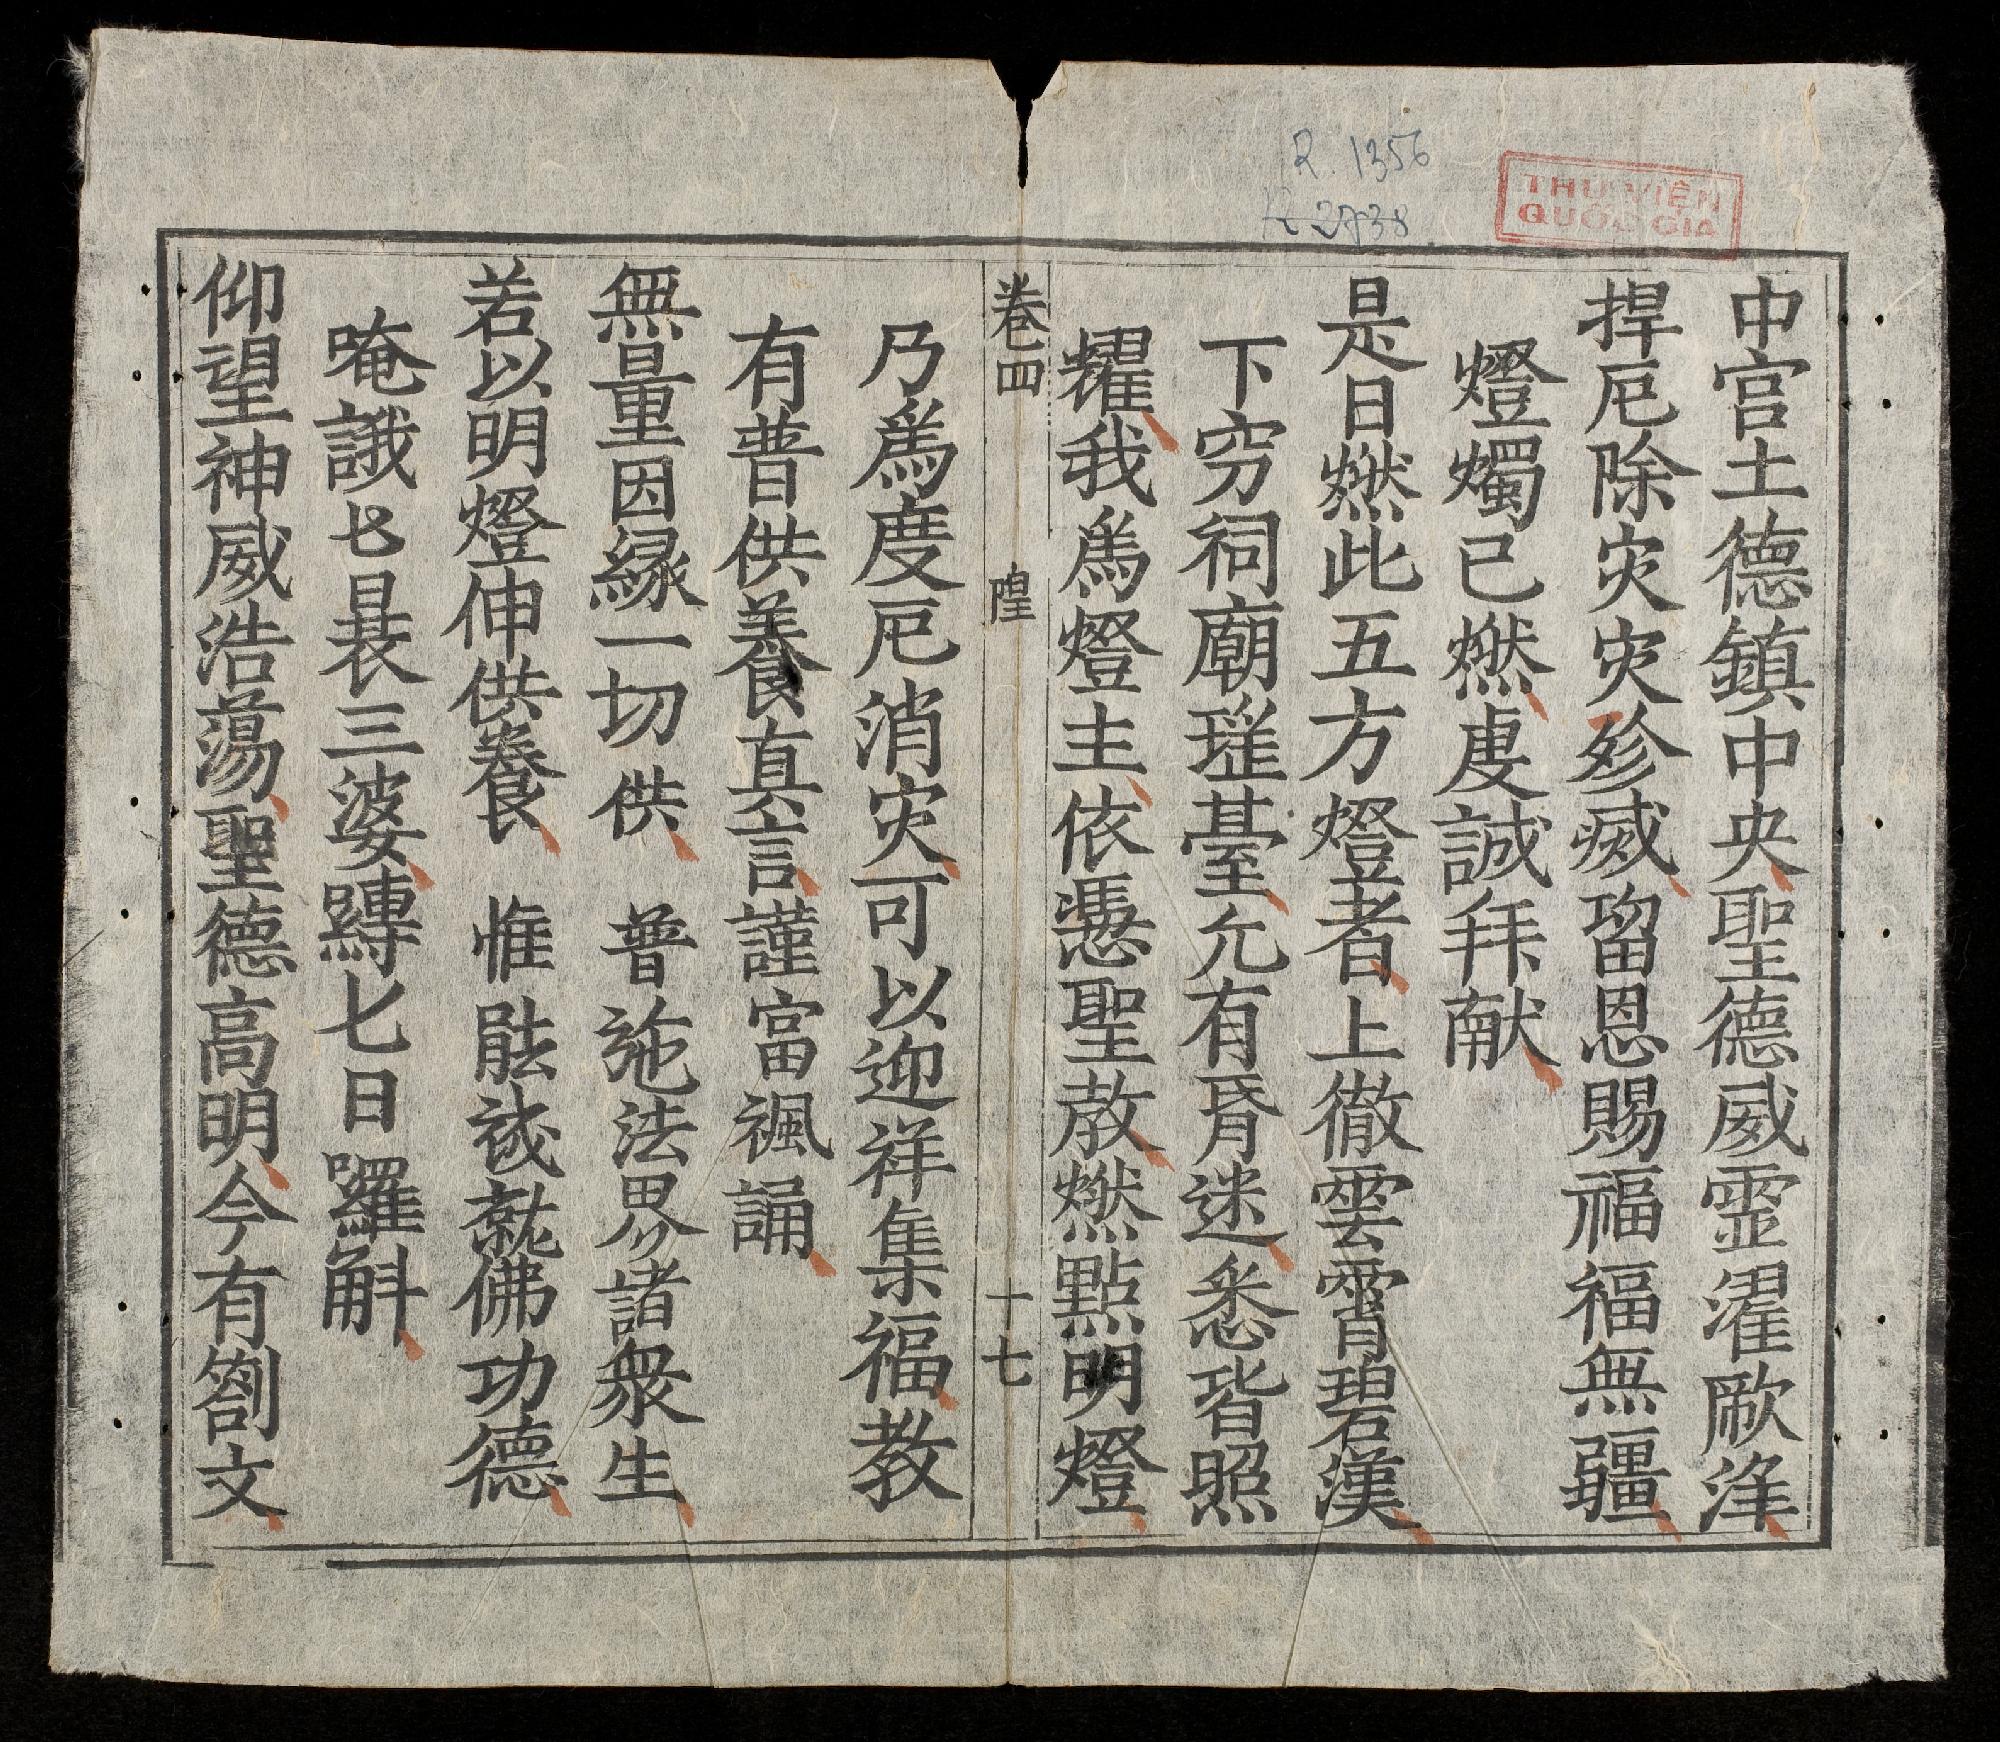 R. 1356
R 2738
THƯ VIỆN
QUỐC GIA
中宫土德鎮中央聖德威霊濯厥洚
捍厄除灾灾殄烕畱恩賜福福無疆
燈燭已燃虔誠拜献
是日燃此五方燈者上徹雲霄碧漢
下穷祠廟璀䑓允有昏迷悉皆照
耀我爲燈主依憑聖教燃點明燈
卷四 隍 十七
乃爲度厄消灾可以迎祥集福教
有普供養真言謹當諷誦
無量因縁一切供 普施法界諸衆生
若以明燈伸供養 惟能成就佛功德
唵誐七曩三婆嚩七日囉斛
仰望神威浩蕩聖德高明今有劄文